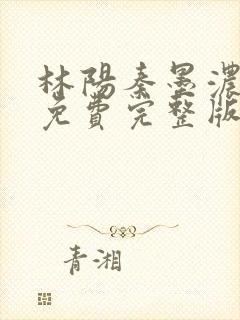 林陽秦墨濃
免費完整版
青湘